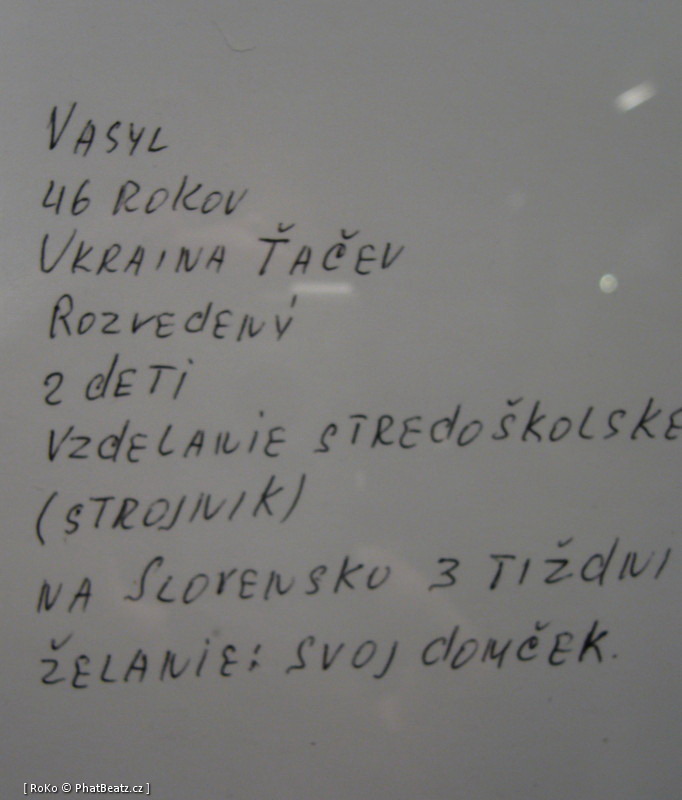 VASYL
46 ROKOV
UKRAINA ŤAČEV
ROZVEDENÝ
2 DETI
VZDELANIE STREDOŠKOLSKE
(STROJNIK)
NA SLOVENSKU 3 TIŽDNI
ŽELANIE: SVOJ DOMČEK.
[ RoKo © PhatBeatz.cz ]